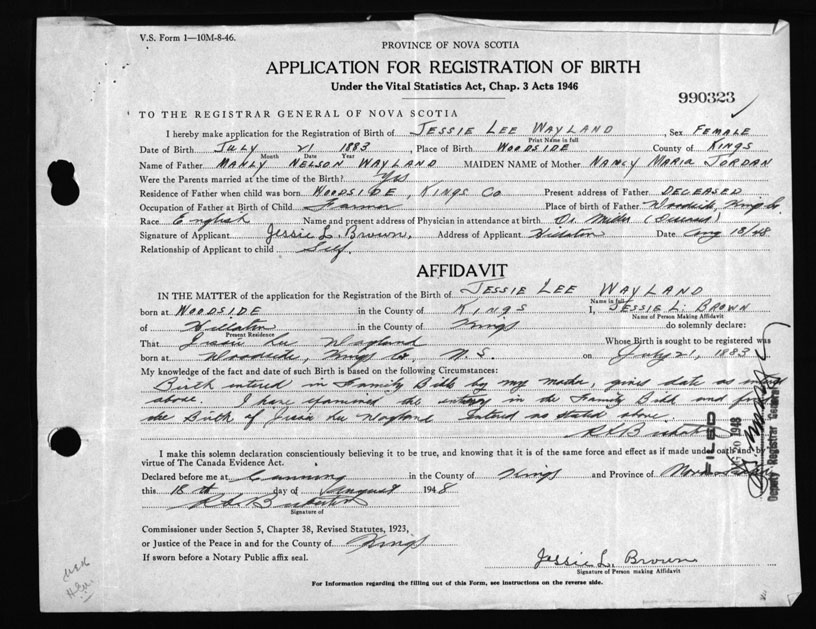 V.S. Form 1—10M-8-46.
PROVINCE OF NOVA SCOTIA
APPLICATION FOR REGISTRATION OF BIRTH
Under the Vital Statistics Act, Chap. 3 Acts 1946
990323
TO THE REGISTRAR GENERAL OF NOVA SCOTIA
I hereby make application for the Registration of Birth of JESSIE LEE WAYLAND, Sex FEMALE
Print Name in full
Date of Birth JULY 21 1883, Place of Birth WOODSIDE County of KINGS
Month Date Year
Name of Father MANLY NELSON WAYLAND MAIDEN NAME of Mother NANCY MARIA JORDAN
Were the Parents married at the time of the Birth? Yes
Residence of Father when child was born WOODSIDE, KINGS CO Present address of Father DECEASED
Occupation of Father at Birth of Child Farmer Place of birth of Father Woodside, Kings Co.
Race English Name and present address of Physician in attendance at birth Dr. Miller
Signature of Applicant Jessie L. Brown, Address of Applicant Hillaton Date Aug 18/48
Relationship of Applicant to child Self.
AFFIDAVIT
IN THE MATTER of the application for the Registration of the Birth of JESSIE LEE WAYLAND
Name in full
born at WOODSIDE in the County of KINGS I, JESSIE L. BROWN
Name of Person Making Affidavit
of Hillaton in the County of Kings do solemnly declare:
Present Residence
That Jessie Lee Wayland Whose Birth is sought to be registered was
born at Woodside, Kings Co, N.S. on July 21, 1883
My knowledge of the fact and date of such Birth is based on the following Circumstances:
Birth entered in Family Bible by my mother, gives date as
above. I have examined the entry in the Family Bible and find
the Birth of Jessie Lee Wayland Entered as stated above.
FILED
20 1948
Deputy Registrar General
I make this solemn declaration conscientiously believing it to be true, and knowing that it is of the same force and effect as if made under oath and by
virtue of The Canada Evidence Act.
Declared before me at Canning in the County of Kings and Province of Nova Scotia
this 18th day of August 1948
Signature of
Commissioner under Section 5, Chapter 38, Revised Statutes, 1923,
or Justice of the Peace in and for the County of Kings
If sworn before a Notary Public affix seal.
Jessie L. Brown
Signature of Person making Affidavit
For Information regarding the filling out of this Form, see instructions on the reverse side.